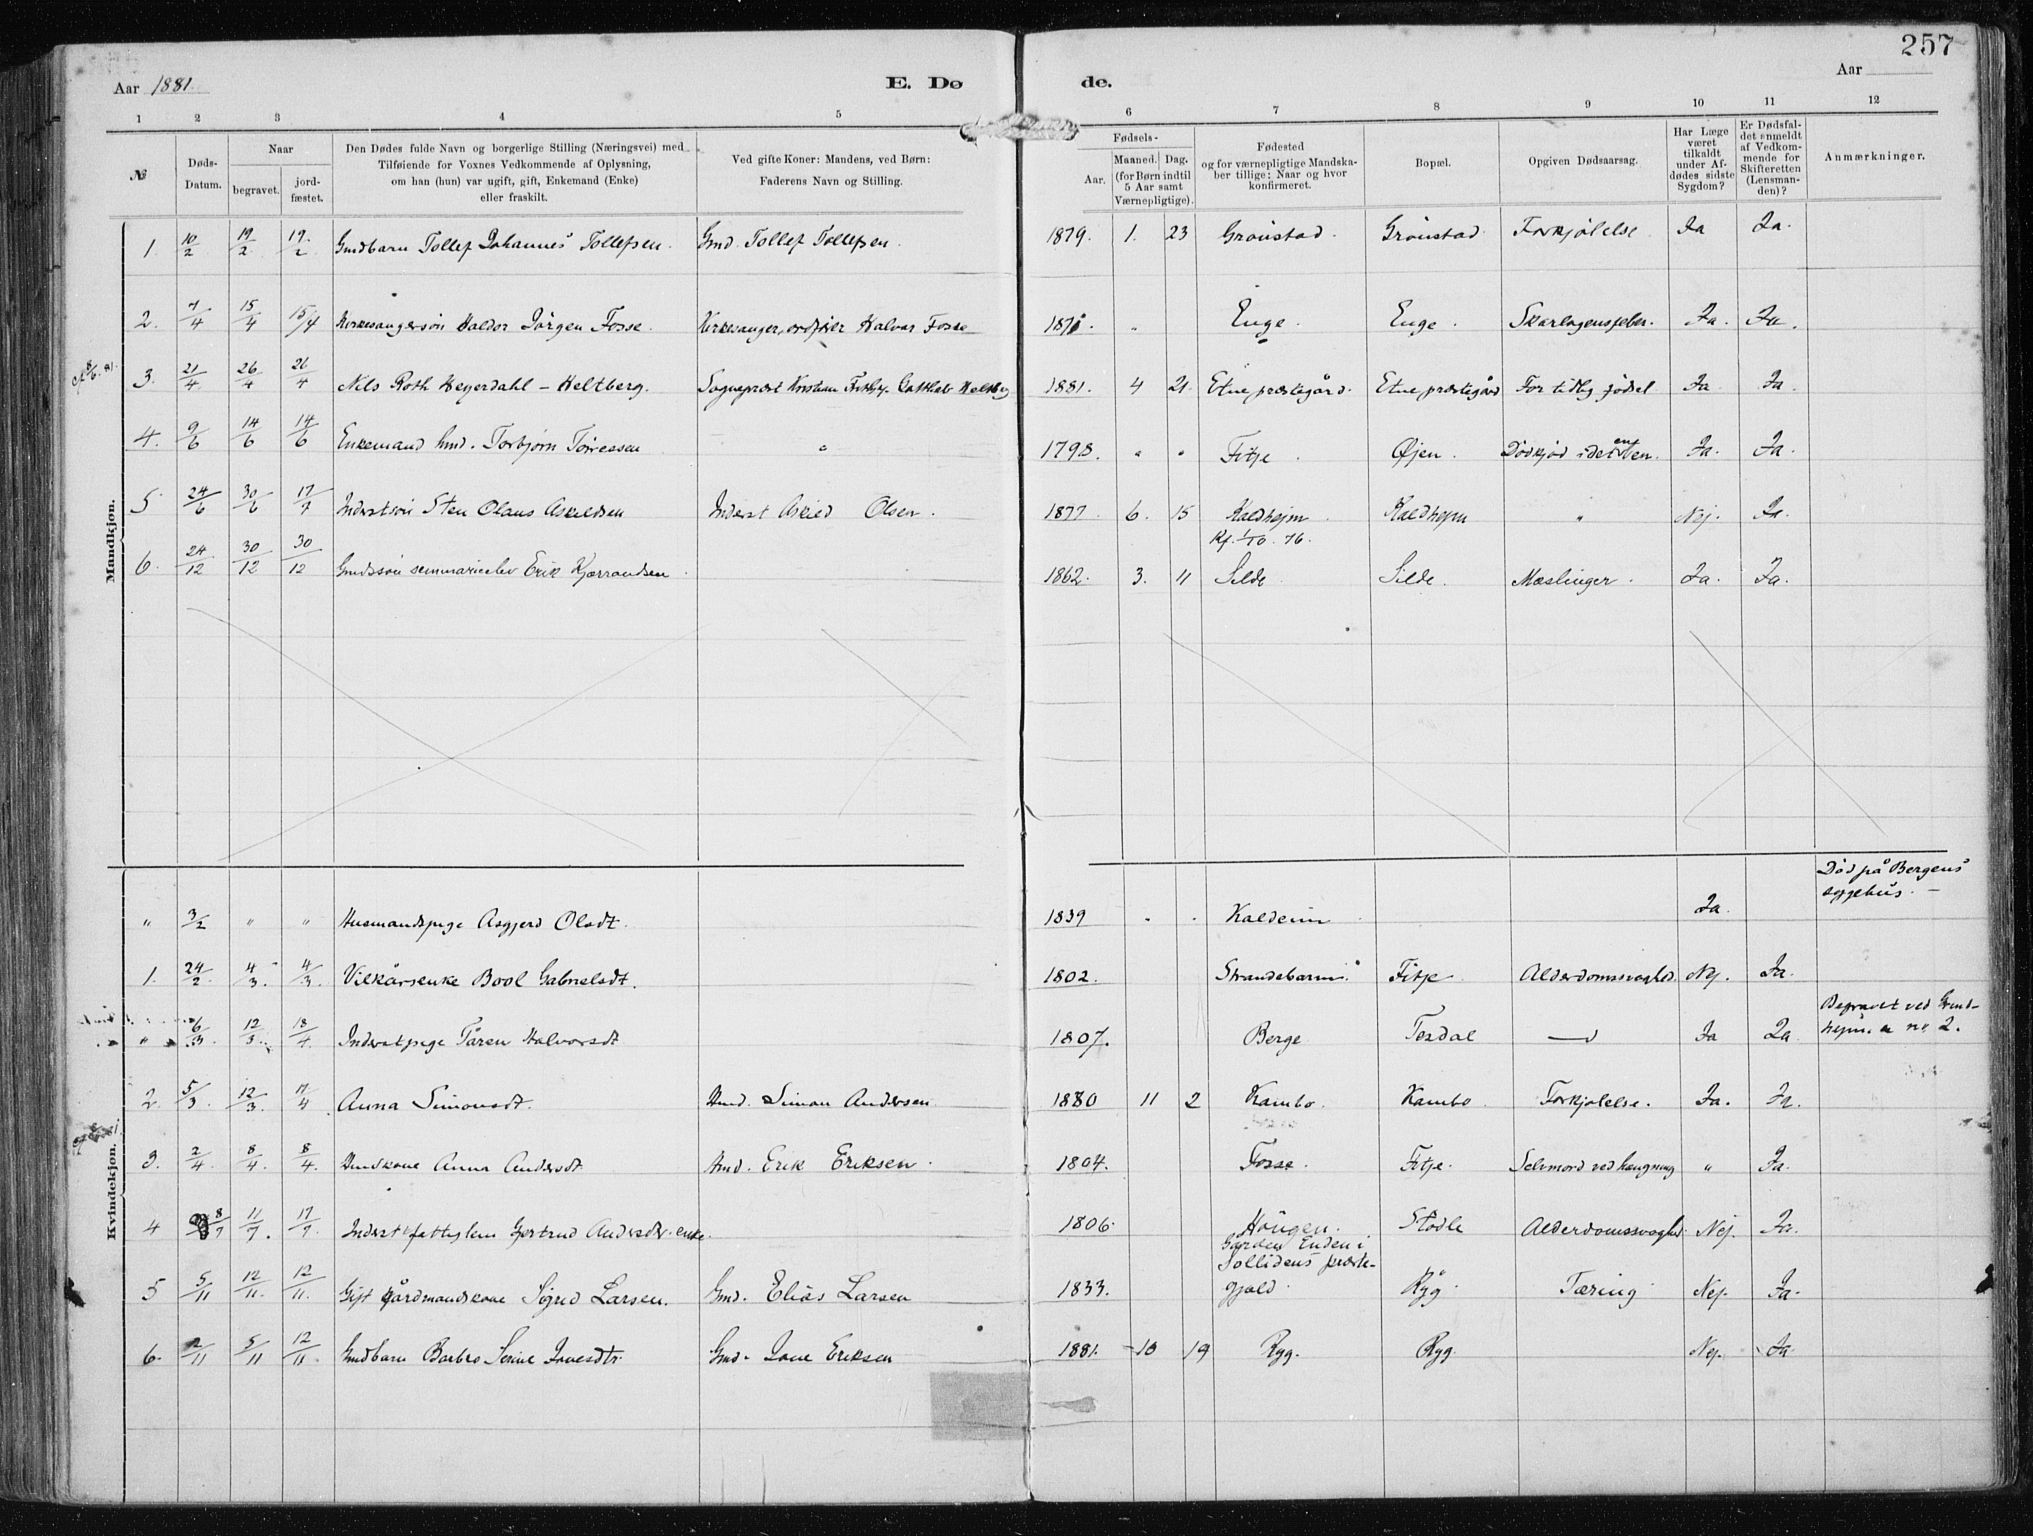 257
Aar 1881. E. Dø de. Aar
1 2 3 4 5 6 7 8 9 10 11 12
№
Døds-
Datum.
Naar
begravet.
jord-
fæstet.
Den Dødes fulde Navn og borgerlige Stilling (Næringsvei) med
Tilføiende for Voxnes Vedkommende af Oplysning,
om han (hun) var ugift, gift, Enkemand (Enke)
eller fraskilt.
Ved gifte Koner: Mandens, ved Børn:
Faderens Navn og Stilling.
Fødsels-
Aar.
Maaned. Dag.
(for Børn indtil
5 Aar samt
Værnepligtige).
Fødested
og for værnepligtige Mandska-
ber tillige: Naar og hvor
konfirmeret.
Bopæl.
Opgiven Dødsaarsag.
Har Læge
været
tilkaldt
under Af-
dødes sidste
Sygdom?
Er Dødsfal-
det anmeldt
af Vedkom-
mende for
Skifteretten
(Lensman-
den)?
Anmærkninger.
Mandkjøn.
1. 10/2 19/2 19/2 Gmdbarn Tollef Johannes Tollefsen. Gmd. Tollef Tollefsen. 1879. 1. 23 Grönstad. Grönstad Forkjölelse Ja Ja.
2. 7/4 15/4 15/4 Kirkesangersön Haldor Jörgen Fosse. Kirkesanger, ordförer Halvor Fosse " Enge. Enge. Skarlagensfeber. Ja. Ja.
3. 21/4 26/4 26/4 Nils Roth Heyerdahl - Heltberg. Sognepræst Kristian 1881. 4 21 Etne præstegård. Etne præstegård For tidlig födsel Ja. Ja.
4. 9/6 14/6 14/6 Enkemand hmd. Torbjörn Törressen " 1798. " " Fitje. Øjen. Ja. Ja.
5 24/6 30/6 17/7 Inderstsön Sten Olaus Askildsen Inderst Askild Olsen. 1877. 6. 15 Kaldhejm. Kaldhejm " Nej. Ja.
Kf. 1/10. 76.
6. 24/12 30/12 30/12 Gmdssön seminarieelev Erik Kjærrandsen. 1862. 3. 11 Silde. Silde. Mæslinger. Ja. Ja.
Kvindekjøn.
Död på Bergens
sygehus. -
" 3/2 " " Husmandspige Asgjerd Olsdt. 1839 " " Kaldeim Ja.
1. 24/2 4/3. 4/3. Vilkårsenke Bool Gabrielsdt. 1802. Strandebarm. Fitje Alderdomssvaghed. Nej. Ja.
Begravet ved Grind-
hejm. a no. 2.
" 6/3 12/3. 18/4. Inderstpige Tåren Halvorsdt 1807. Berge Tesdal Ja Ja
2. 5/3. 12/3. 17/4 Anna Simonsdt. Hmd. Simon Andersen 1880 11 2 Kambo. Kambo. Forkjölelse. Ja. Ja.
3. 2/4. 8/4. 8/4. Hmdkone Anna Andersdt. Hmd. Erik Eriksen. 1804. Fosse. Fitje. Selvmord ved hængning " Ja.
4 8/7 11/7. 17/7. Inderst fattiglem Gjertrud Andersdtr. enke. 1806. Haugen. Stödle Alderdomssvaghed Nej. Ja.
Garden Enden i
Sollidens præste-
5 5/11 12/11. 12/11. Gift gårdmandskone Sigrid Larsen. Gmd. Elias Larsen 1833. gjæld. Ryg. Tæring Nej. Ja.
6. 2/11 5/11 12/11. Gmdbarn Barbro Serine Jonesdtr. Gmd. Jone Eriksen 1881. 10 19 Ryg. Ryg. Nej. Ja.